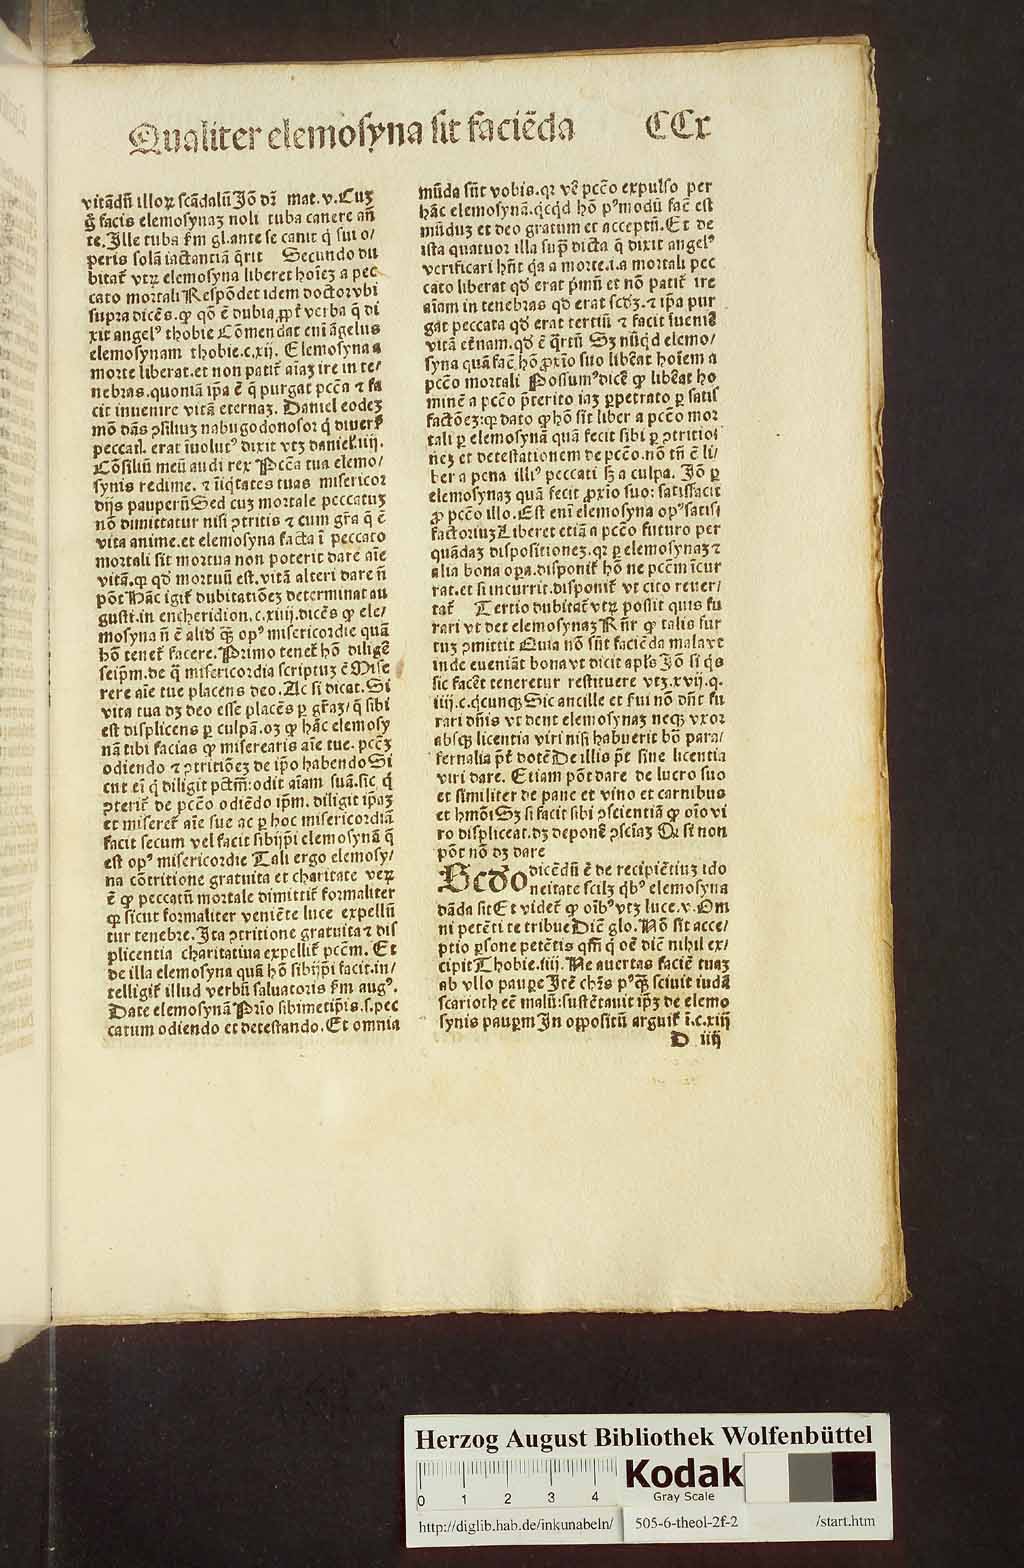 Qualiter elemosyna sit faciēda CCx
vitādū illoꝝ scādalū Jō dꝛ mat. v. Cuʒ
facis elemosynaʒ noli tuba canere añ
te. Ille tuba ẜm gl. ante se canit q̄ sui o/
peris solā iactantiā q̄rit Secundo du
bitat̄ vtꝝ elemosyna liberet hoīeʒ a pec
cato mortali Respōdet idem doctor vbi
supra dicēs. ꝙ qō ē dubia ꝓpt̄ verba q̄ di
xit angelꝰ thobie Cōmendat enī āgelus
elemosynam thobie. c. xij. Elemosyna a
morte liberat. et non patit̄ aīaʒ ire in te/
nebras. quoniā ip̄a ē q̄ purgat pcc̄a ⁊ fa
cit inuenire vitā eternaʒ. Daniel eodeʒ
mō dās ꝯsiliuʒ nabugodonosor q̄ diuers̄
peccatꝭ. erat īuolutꝰ dixit vtʒ daniel. iiij.
Cōsiliū meū audi rex Pcc̄a tua elemo/
synis redime. ⁊ īiq̄tates tuas misericor
dijs pauperū Sed cuʒ mortale peccatuʒ
nō dimittatur nisi ꝯtritis ⁊ cum gr̄a q̄ ē
vita anime. et elemosyna facta ī peccato
mortali sit mortua non poterit dare aīe
vitā. ꝙ qd̄ mortuū est. vitā alteri dare ñ
pōt Hāc igit̄ dubitatiōeʒ determinat au
gusti. in encheridion. c. xiiij. dicēs ꝙ ele/
mosyna ñ ē aliđ ꝙ̄ opꝰ misericordie quā
hō tenet̄ facere. Primo tenet̄ hō diligē
seip̄m. de q̄ misericordia scriptuʒ ē Mise
rere aīe tue placens deo. Ac si dicat. Si
vita tua dʒ deo esse placēs ꝑ gr̄aʒ/ q̄ sibi
est displicens ꝑ culpā. oʒ ꝙ hāc elemosy
nā tibi facias ꝙ miserearis aīe tue. pcc̄ʒ
odiendo ⁊ ꝯtritiōeʒ de ip̄o habendo Si
cut eī q̄ diligit pctm̄: odit aīam suā. sic q̄
ꝯterit̄ de pcc̄o odiēdo ip̄m. diligit ip̄aʒ
et miseret̄ aīe sue ac ꝑ hoc misericordiā
facit secum vel facit sibijp̄i elemosynā q̄
est opꝰ misericordie Tali ergo elemosy/
na cōtritione gratuita et charitate veꝝ
ē ꝙ peccatū mortale dimittit̄ formaliter
ꝙ sicut formaliter veniēte luce expellū
tur tenebre. Ita ꝯtritione gratuita ⁊ dis
plicentia charitatiua expellit̄ pcc̄m. Et
de illa elemosyna quā hō sibijp̄i facit. in/
telligit̄ illud verbū saluatoris ẜm augꝰ.
Date elemosynā Prīo sibimetip̄is. s. pec
catum odiendo et detestando. Et omnia
mūda sūt vobis. qꝛ vē pcc̄o expulso per
hāc elemosynā. q̄cq̄d hō pꝰmodū fac̄ est
mūduʒ et deo gratum et acceptū. Et de
ista quatuor illa sup̄ dicta q̄ dixit angelꝰ
verificari hn̄t q̄a a morte. i. a mortali pec
cato liberat qd̄ erat pꝛimū et nō patit̄ ire
aīam in tenebras qd̄ erat scdʒ. ⁊ ip̄a pur
gat peccata qd̄ erat tertiū ⁊ facit īuenīē
vitā et̄nam. qd̄ ē q̄rtū Sʒ nūq̄d elemo/
syna quā fac̄ hō ꝓxīo suo liberat hoīem a
pcc̄o mortali Possumꝰ dicē ꝙ liberat ho
minē a pcc̄o pꝛeterito iaʒ ꝑpetrato ꝑ satis
factōeʒ: ꝙ dato ꝙ hō sit liber a pcc̄o mor
tali ꝑ elemosynā quā fecit sibi ꝑ ꝯtritioī
neʒ et detestationem de pcc̄o. nō tn̄ ē li/
ber a pena illiꝰ peccati lʒ a culpa. Jō ꝑ
elemosynaʒ quā fecit ꝓxīo suo: satisfacit
ꝓ pcc̄o illo. Est enī elemosyna opꝰ satisi
factoriuʒ Liberet etiā a pcc̄o futuro per
quādaʒ dispositioneʒ. qꝛ ꝑ elemosynaʒ ⁊
alia bona oꝑa. disponit̄ hō ne pcc̄m īcur
rat. et si incurrit. disponit̄ vt cito reuer/
tat̄ Tertio dubitat̄ vtꝝ possit quis fu
rari vt det elemosynaʒ Rn̄r ꝙ talis fur
tuʒ ꝯmittit Quia nō sūt faciēda mala vt
inde eueniāt bona vt dicit apl̄s Jō si q̄s
sic facēt teneretur restituere vtʒ. xvij. q.
iiij. c. q̄cunqʒ Sic ancille et fui nō dn̄t fu
rari dn̄is vt dent elemosynaʒ neqʒ vxor
absqʒ licentia viri nisi habuerit bō para/
fernalia pt̄ dotē De illis pt̄ sine licentia
viri dare. Etiam pōt dare de lucro suo
et similiter de pane et vino et carnibus
et hmōi Sʒ si facit sibi ꝯscientiā ꝙ oīo vi
ro displiceat. dʒ deponē ꝯscīaʒ Qꝛ si non
pōt nō dʒ dare
Scd̄o dicēdū ē de recipiētiuʒ ido
neitate scilʒ q̄bꝰ elemosyna
dāda sit Et videt̄ ꝙ oībꝰ vtʒ luce. v. Om
ni petēti te tribue Dicē glo. Nō sit acce/
ptio ꝑsone petētis qm̄ q̄ oē dicē nihil ex/
cipit Thobie. iiij. Ne auertas faciē tuaʒ
ab vllo pauꝑe Itē chr̄s pꝰqꝙ̄ sciuit iudā
scarioth eē malū: sustētauit ip̄ʒ de elemo
synis pauꝑm In oppositū arguit̄ ī. c. xiij
D iiij
Herzog August Bibliothek Wolfenbüttel
Kodak
Gray Scale
0 1 2 3 4
http://diglib.hab.de/inkunabeln/ 505-6-theol-2f-2 /start.htm